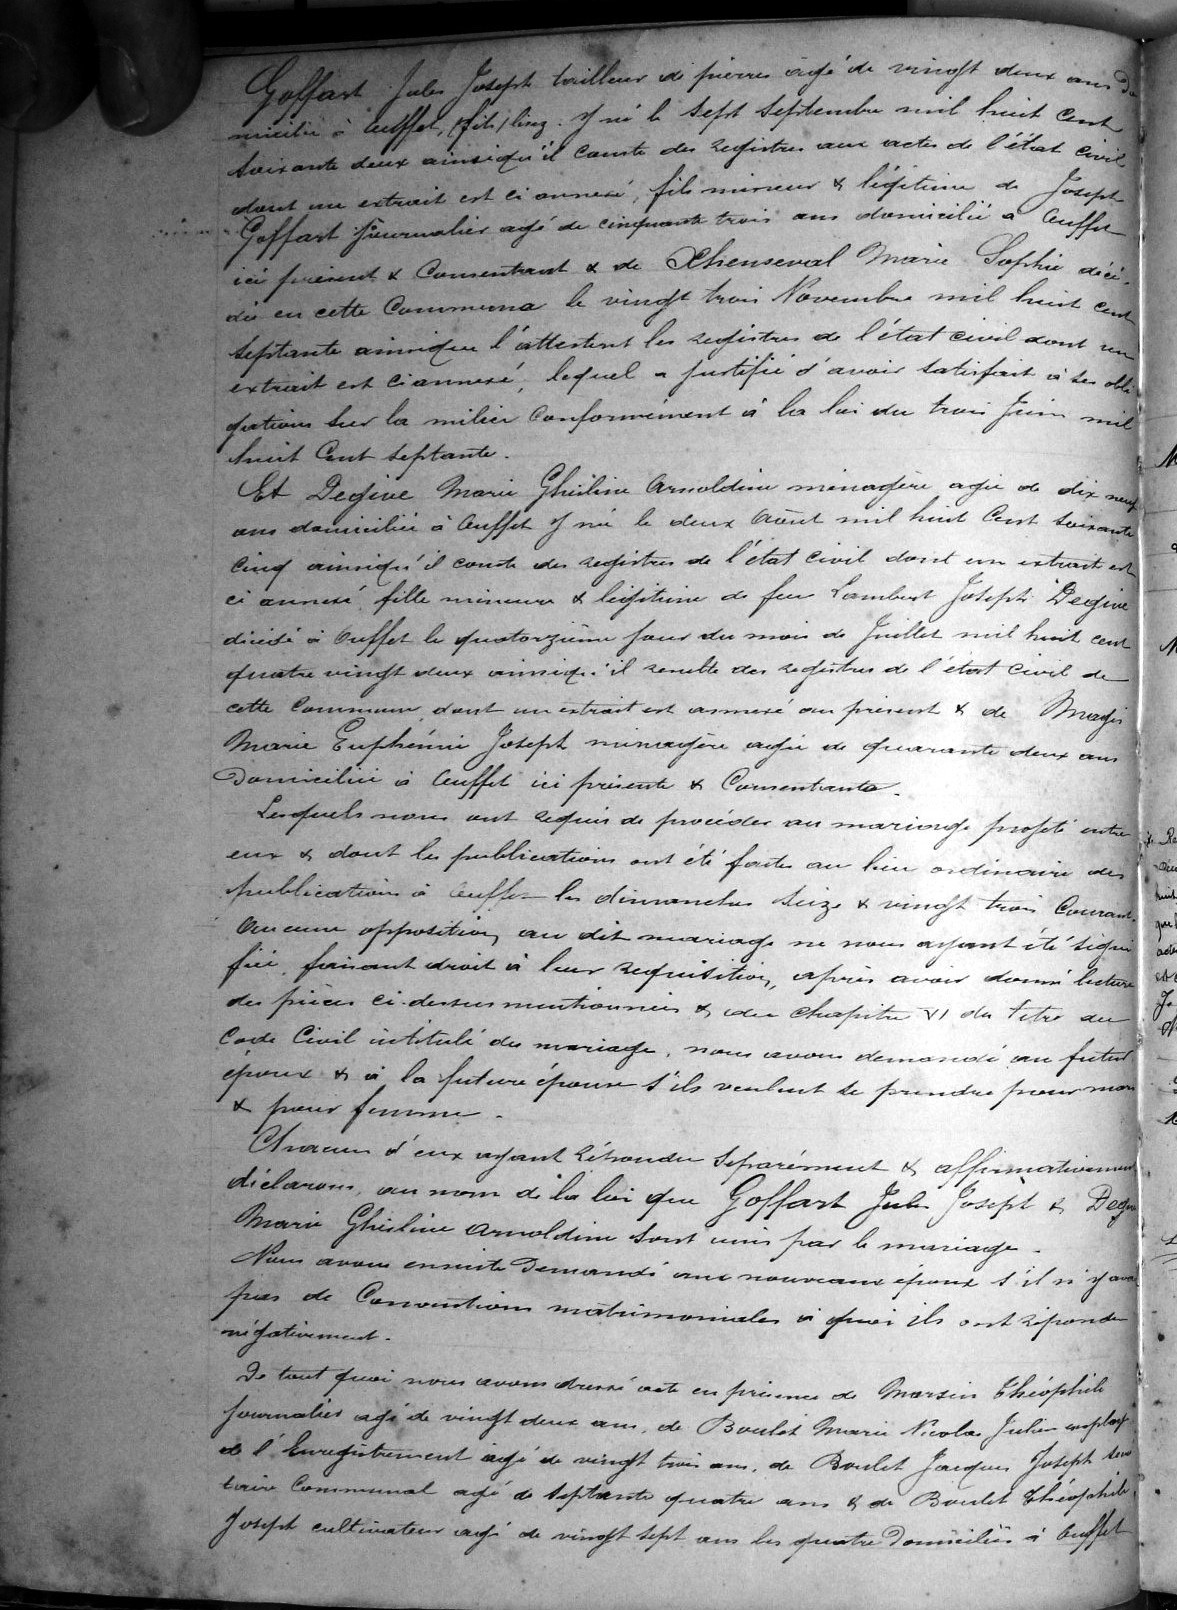 Goffart Jules Joseph tailleur de pierres agé de vingt deux ans Do
micilié à Ouffet, (fils) Liég. Y né le sept Septembre mil huit Cent
soixante deux ainsiqu'il conste des registres aux actes de l'état civil
dont un extrait est ci annexé, fils mineur & légitime de Joseph
Goffart journalier agé de cinquante trois ans domicilié a Ouffet
ici présent & Consentant & de Xhenseval Marie Sophie décé-
dée en cette Commune le vingt trois Novembre mil huit cent
septante ainsique l'attestent les registres de l'état civil dont un
extrait est ci annexé, lequel a justifié d'avoir satisfait à ses obli
gations sur la milice Conformément à la loi du trois Juin mil
huit Cent septante.
Et Degive Marie Ghisline Arnoldine ménagère agée de dix neuf
ans domiciliée à Ouffet y née le deux Août mil huit Cent soixante
cinq ainsiqu'il conste des registres de l'état civil dont un extrait est
ci annexé, fille mineure & légitime de feu Lambert Joseph Degive
décédé à Ouffet le quatorzième jour du mois de Juillet mil huit cent
quatre vingt deux ainsiqu'il résulte des registres de l'état civil de
cette Commune, dont un extrait est annexé au présent & de Magis
Marie Euphémie Joseph ménagère agée de quarante deux ans
Domiciliée à Ouffet ici présente & Consentante.
Lesquels nous ont requis de procéder au mariage projeté entre
eux & dont les publications ont été faites au lieu ordinaire des
publications à Ouffet les dimanches seize & vingt trois Courant.
Aucune opposition au dit mariage ne nous ayant été signi
fiée, faisant droit à leur requisition, après avoir donné lecture
des pièces ci-dessus mentionnées & du Chapitre VI du titre du
Code Civil intitulé du mariage, nous avons demandé au futur
époux & à la future épouse s'ils veulent se prendre pour mari
& pour femme.
Chacun d'eux ayant répondu séparément & affirmativement
déclarons, au nom de la loi que Goffart Jules Joseph & Degive
Marie Ghisline Arnoldine sont unis par le mariage.
Nous avons ensuite Demandé aux nouveaux époux s'il n'y avait
pas de Conventions matrimoniales à quoi ils ont répondu
négativement.
De tout quoi nous avons dressé acte en présence de Marsin Théophile
journalier agé de vingt deux ans, de Boulet Marie Nicolas Julien employé
de l'Enregistrement agé de vingt trois ans, de Boulet Jacques Joseph secré
taire Communal agé de septante quatre ans & de Boulet Théophile
Joseph cultivateur agé de vingt sept ans les quatre Domiciliés à Ouffet